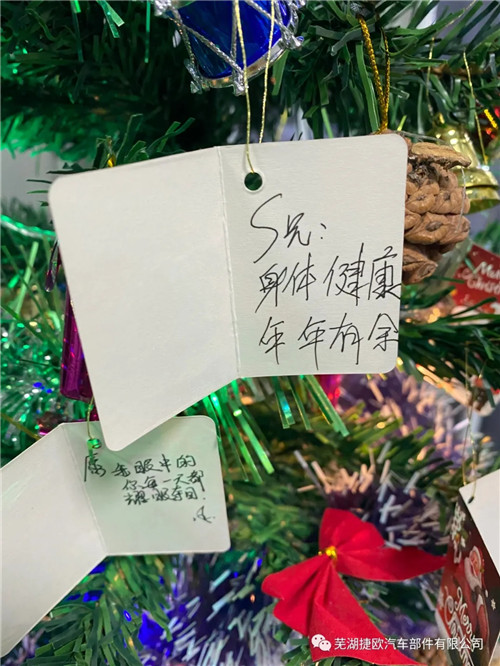 S兄：
身体健康
年年有余
愿爸眼中的
你每一天都
耀眼夺目！
Merry
芜湖捷欧汽车部件有限公司